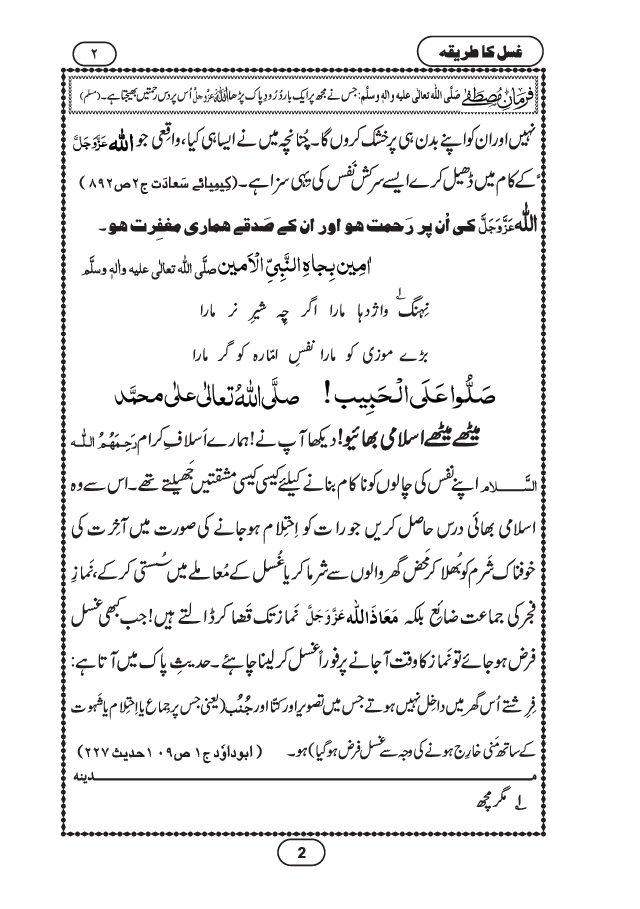 غسل کا طریقہ
۲
فرمانِ مُصطَفٰے صَلَّی اللہ تعالیٰ علیہ واٰلہٖ وسلَّم: جس نے مجھ پر ایک بار دُرُودِ پاک پڑھا اللہ عَزَّوَجَلَّ اُس پر دس رحمتیں بھیجتا ہے۔ (مسلم)
نہیں اور ان کو اپنے بدن ہی پر خشک کروں گا۔ چُنانچِہ میں نے ایسا ہی کیا، واقِعی جو اللہ عَزَّوَجَلَّ
کے کام میں ڈِھیل کرے ایسے سرکش نَفس کی یہی سزا ہے۔ (کیمِیائے سَعادَت ج۲ ص۸۹۲ )
اللہ عَزَّوَجَلَّ کی اُن پر رَحمت ہو اور ان کے صَدقے ہماری مغفِرت ہو۔
اٰمِین بِجاہِ النَّبِیِّ الْاَمین صلَّی اللہ تعالیٰ علیہ واٰلہٖ وسلَّم
نِہنگ ۱؎ واژدہا مارا اگر چِہ شیرِ نر مارا
بڑے مُوذی کو مارا نفسِ امّارہ کو گر مارا
صَلُّوا عَلَی الْحَبِیب! صلَّی اللہُ تعالٰی علٰی محمَّد
میٹھے میٹھے اسلامی بھائیو! دیکھا آپ نے! ہمارے اَسلافِ کرام رَحِمَہُمُ اللہ
السَّلام اپنے نفس کی چالوں کو ناکام بنانے کیلئے کیسی کیسی مشقتیں جَھیلتے تھے۔ اس سے وہ
اسلامی بھائی درس حاصل کریں جو رات کو اِحتِلام ہوجانے کی صورت میں آخِرت کی
خوفناک شَرم کو بُھلا کر مَحض گھر والوں سے شرما کر یا غُسل کے مُعاملے میں سُستی کر کے، نَمازِ
فجر کی جماعت ضائِع بلکہ مَعَاذَ اللہ عَزَّوَجَلَّ نَماز تک قَضا کر ڈالتے ہیں! جب کبھی غسل
فرض ہوجائے تو نَماز کا وقت آجانے پر فوراً غسل کر لینا چاہئے۔ حدیثِ پاک میں آتا ہے:
فِرِشتے اُس گھر میں داخِل نہیں ہوتے جس میں تصویر اور کتّا اور جُنُب (یعنی جس پر جماع یا اِحتِلام یا شَہوت
کے ساتھ مَنی خارِج ہونے کی وجہ سے غسل فرض ہو گیا) ہو۔ ( ابوداوٗد ج۱ ص۱۰۹ حدیث ۲۲۷ )
مدینہ
۱؎ مگر مچھ
2